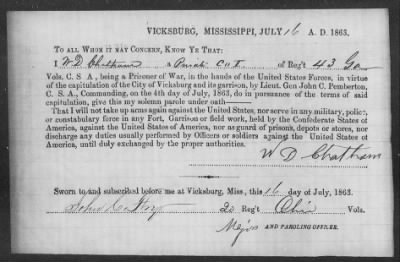 VICKSBURG, MISSISSIPPI, JULY 16 A. D. 1863.
TO ALL WHOM IT MAY CONCERN, KNOW YE THAT:
I W D Chatham a Privat Co I of Reg't 43 Ga
Vols. C. S. A., being a Prisoner of War, in the hands of the United States Forces, in virtue
of the capitulation of the City of Vicksburg and its garrison, by Lieut. Gen John C. Pemberton,
C. S. A., Commanding, on the 4th day of July, 1863, do in pursuance of the terms of said
capitulation, give this my solemn parole under oath——
That I will not take up arms again against the United States, nor serve in any military, police,
or constabulary force in any Fort, Garrison or field work, held by the Confederate States of
America, against the United States of America, nor as guard of prisons, depots or stores, nor
discharge any duties usually performed by Officers or soldiers against the United States of
America, until duly exchanged by the proper authorities.
W D Chatham
Sworn to and subscribed before me at Vicksburg, Miss., this 16 day of July, 1863.
John 20 Reg't Ohio Vols.
Major AND PAROLING OFFICER.